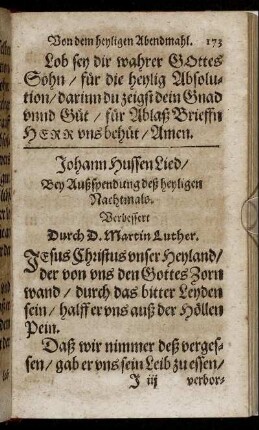 Von dem heyligen Abendmahl. 173
Lob sey dir wahrer GOttes
Sohn / für die heylig Absolu-
tion / darinn du zeigst dein Gnad
vnnd Güt / für Ablaß Brieffn
HERR vns behüt / Amen.
Johann Hussen Lied /
Bey Außspendung deß heyligen
Nachtmals.
Verbessert
Durch D. Martin Luther.
JEsus Christus vnser Heyland /
der von vns den Gottes Zorn
wand / durch das bitter Leyden
sein / halff er vns auß der Höllen
Pein.
Daß wir nimmer deß verges-
sen / gab er vns sein Leib zu essen /
J iij verbor-